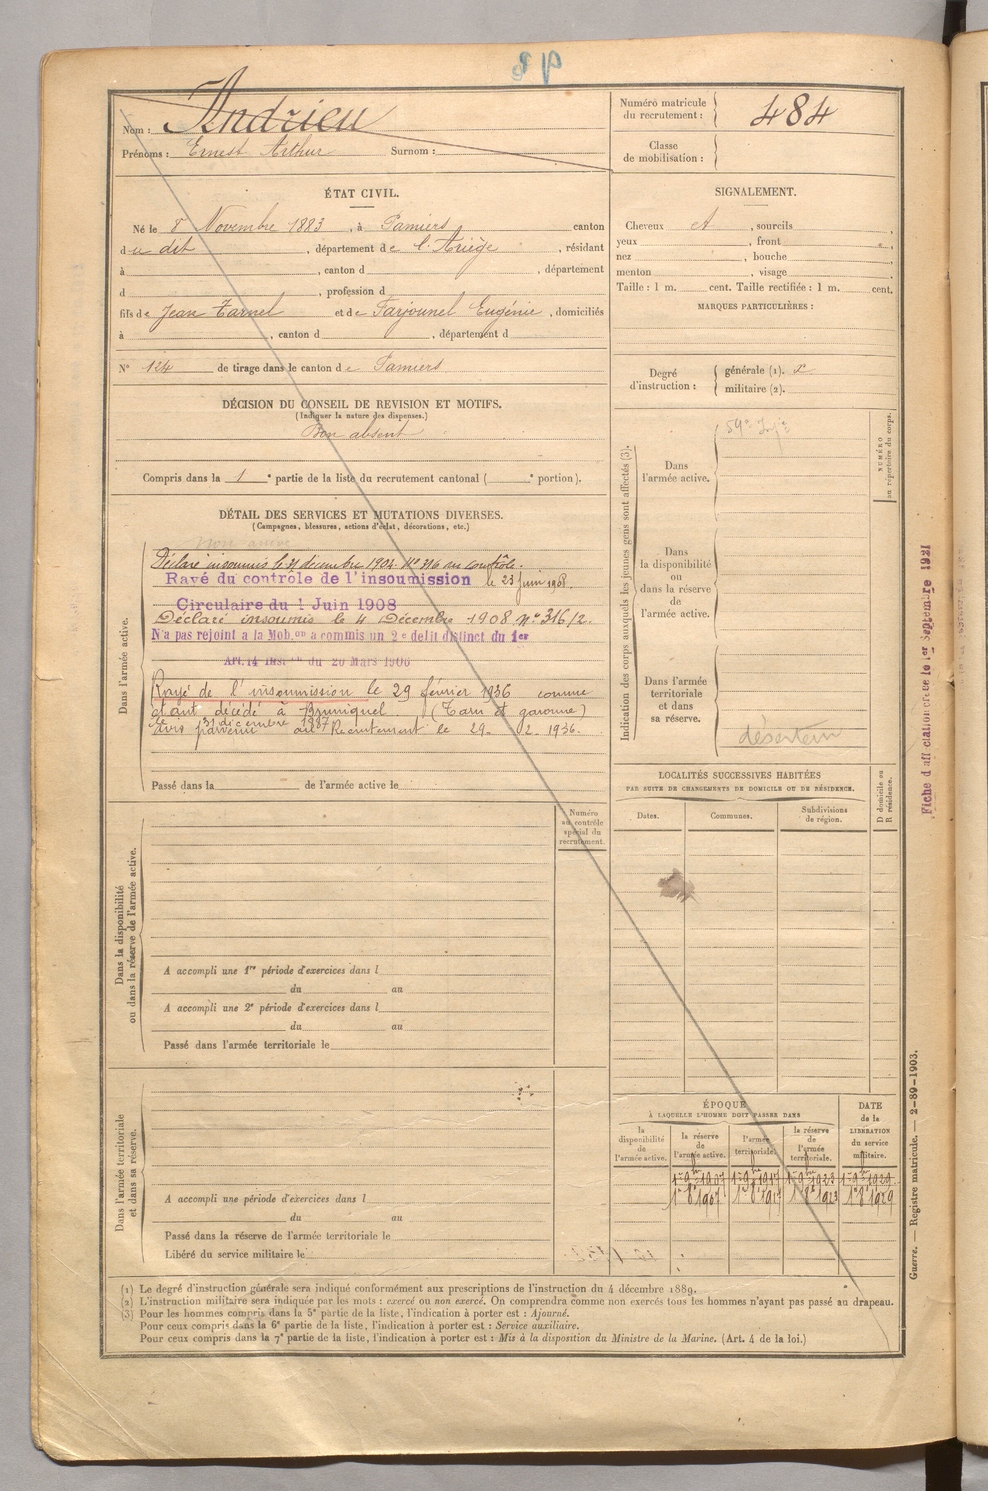 Nom : Andrieu
Prénoms : Ernest Arthur Surnom :
Numéro matricule du recrutement : 484
Classe de mobilisation :
ÉTAT CIVIL.
Né le 8 Novembre 1883, à Pamiers canton
du dit, département de l'Ariège, résidant
à , canton d , département
d , profession d
fils de Jean Tarnel et de Farjounel Eugénie, domiciliés
à , canton d , département d
N° 124 de tirage dans le canton de Pamiers
DÉCISION DU CONSEIL DE REVISION ET MOTIFS.
(Indiquer la nature des dispenses.)
Bon absent
Compris dans la 1e partie de la liste du recrutement cantonal ( e portion).
DÉTAIL DES SERVICES ET MUTATIONS DIVERSES.
(Campagnes, blessures, actions d'éclat, décorations, etc.)
Dans l'armée active.
Déclaré insoumis le 31 décembre 1904. N° 316 du contrôle.
Rayé du contrôle de l'insoumission le 23 juin 1908.
Circulaire du 1 Juin 1908
Déclaré insoumis le 4 Décembre 1908 N° 316/2.
N'a pas rejoint a la Mob.on a commis un 2e delit distinct du 1er
Art. 14 Inst.on du 20 Mars 1906
Rayé de l'insoumission le 29 février 1936 comme
étant décédé à Bruniquel. (Tarn et garonne)
le 31 décembre 1887
avis parvenu au Recrutement le 29-02-1936.
Passé dans la de l'armée active le
Dans la disponibilité
ou dans la réserve de l'armée active.
Numéro au contrôle spécial du recrutement.
A accompli une 1re période d'exercices dans l
du au
A accompli une 2e période d'exercices dans l
du au
Passé dans l'armée territoriale le
Dans l'armée territoriale
et dans sa réserve.
A accompli une période d'exercices dans l
du au
Passé dans la réserve de l'armée territoriale le
Libéré du service militaire le
SIGNALEMENT.
Cheveux , sourcils ,
yeux , front ,
nez , bouche ,
menton , visage
Taille : 1 m. cent. Taille rectifiée : 1 m. cent.
MARQUES PARTICULIÈRES :
Degré d'instruction :
générale (1). x
militaire (2).
Indication des corps auxquels les jeunes gens sont affectés (3).
NUMÉRO au répertoire du corps.
Dans l'armée active.
59e Infie
Dans la disponibilité ou dans la réserve de l'armée active.
Dans l'armée territoriale et dans sa réserve.
LOCALITÉS SUCCESSIVES HABITÉES
PAR SUITE DE CHANGEMENTS DE DOMICILE OU DE RÉSIDENCE.
D domicile ou R résidence.
Dates. Communes. Subdivisions de région.
ÉPOQUE
À LAQUELLE L'HOMME DOIT PASSER DANS
DATE de la LIBÉRATION du service militaire.
la disponibilité de l'armée active. la réserve de l'armée active. l'armée territoriale. la réserve de l'armée territoriale.
1er 9bre 1907 1er 9bre 1917 1er 9bre 1923 1er 9bre 1929
1er 8e 1907 1er 8e 1917 1er 8e 1923 1er 8e 1929
Fiche d'affectation créée le 1er Septembre 1921
Guerre. — Registre matricule. — 2-89-1903.
(1) Le degré d'instruction générale sera indiqué conformément aux prescriptions de l'instruction du 4 décembre 1889.
(2) L'instruction militaire sera indiquée par les mots : exercé ou non exercé. On comprendra comme non exercés tous les hommes n'ayant pas passé au drapeau.
(3) Pour les hommes compris dans la 5e partie de la liste, l'indication à porter est : Ajourné.
Pour ceux compris dans la 6e partie de la liste, l'indication à porter est : Service auxiliaire.
Pour ceux compris dans la 7e partie de la liste, l'indication à porter est : Mis à la disposition du Ministre de la Marine. (Art. 4 de la loi.)